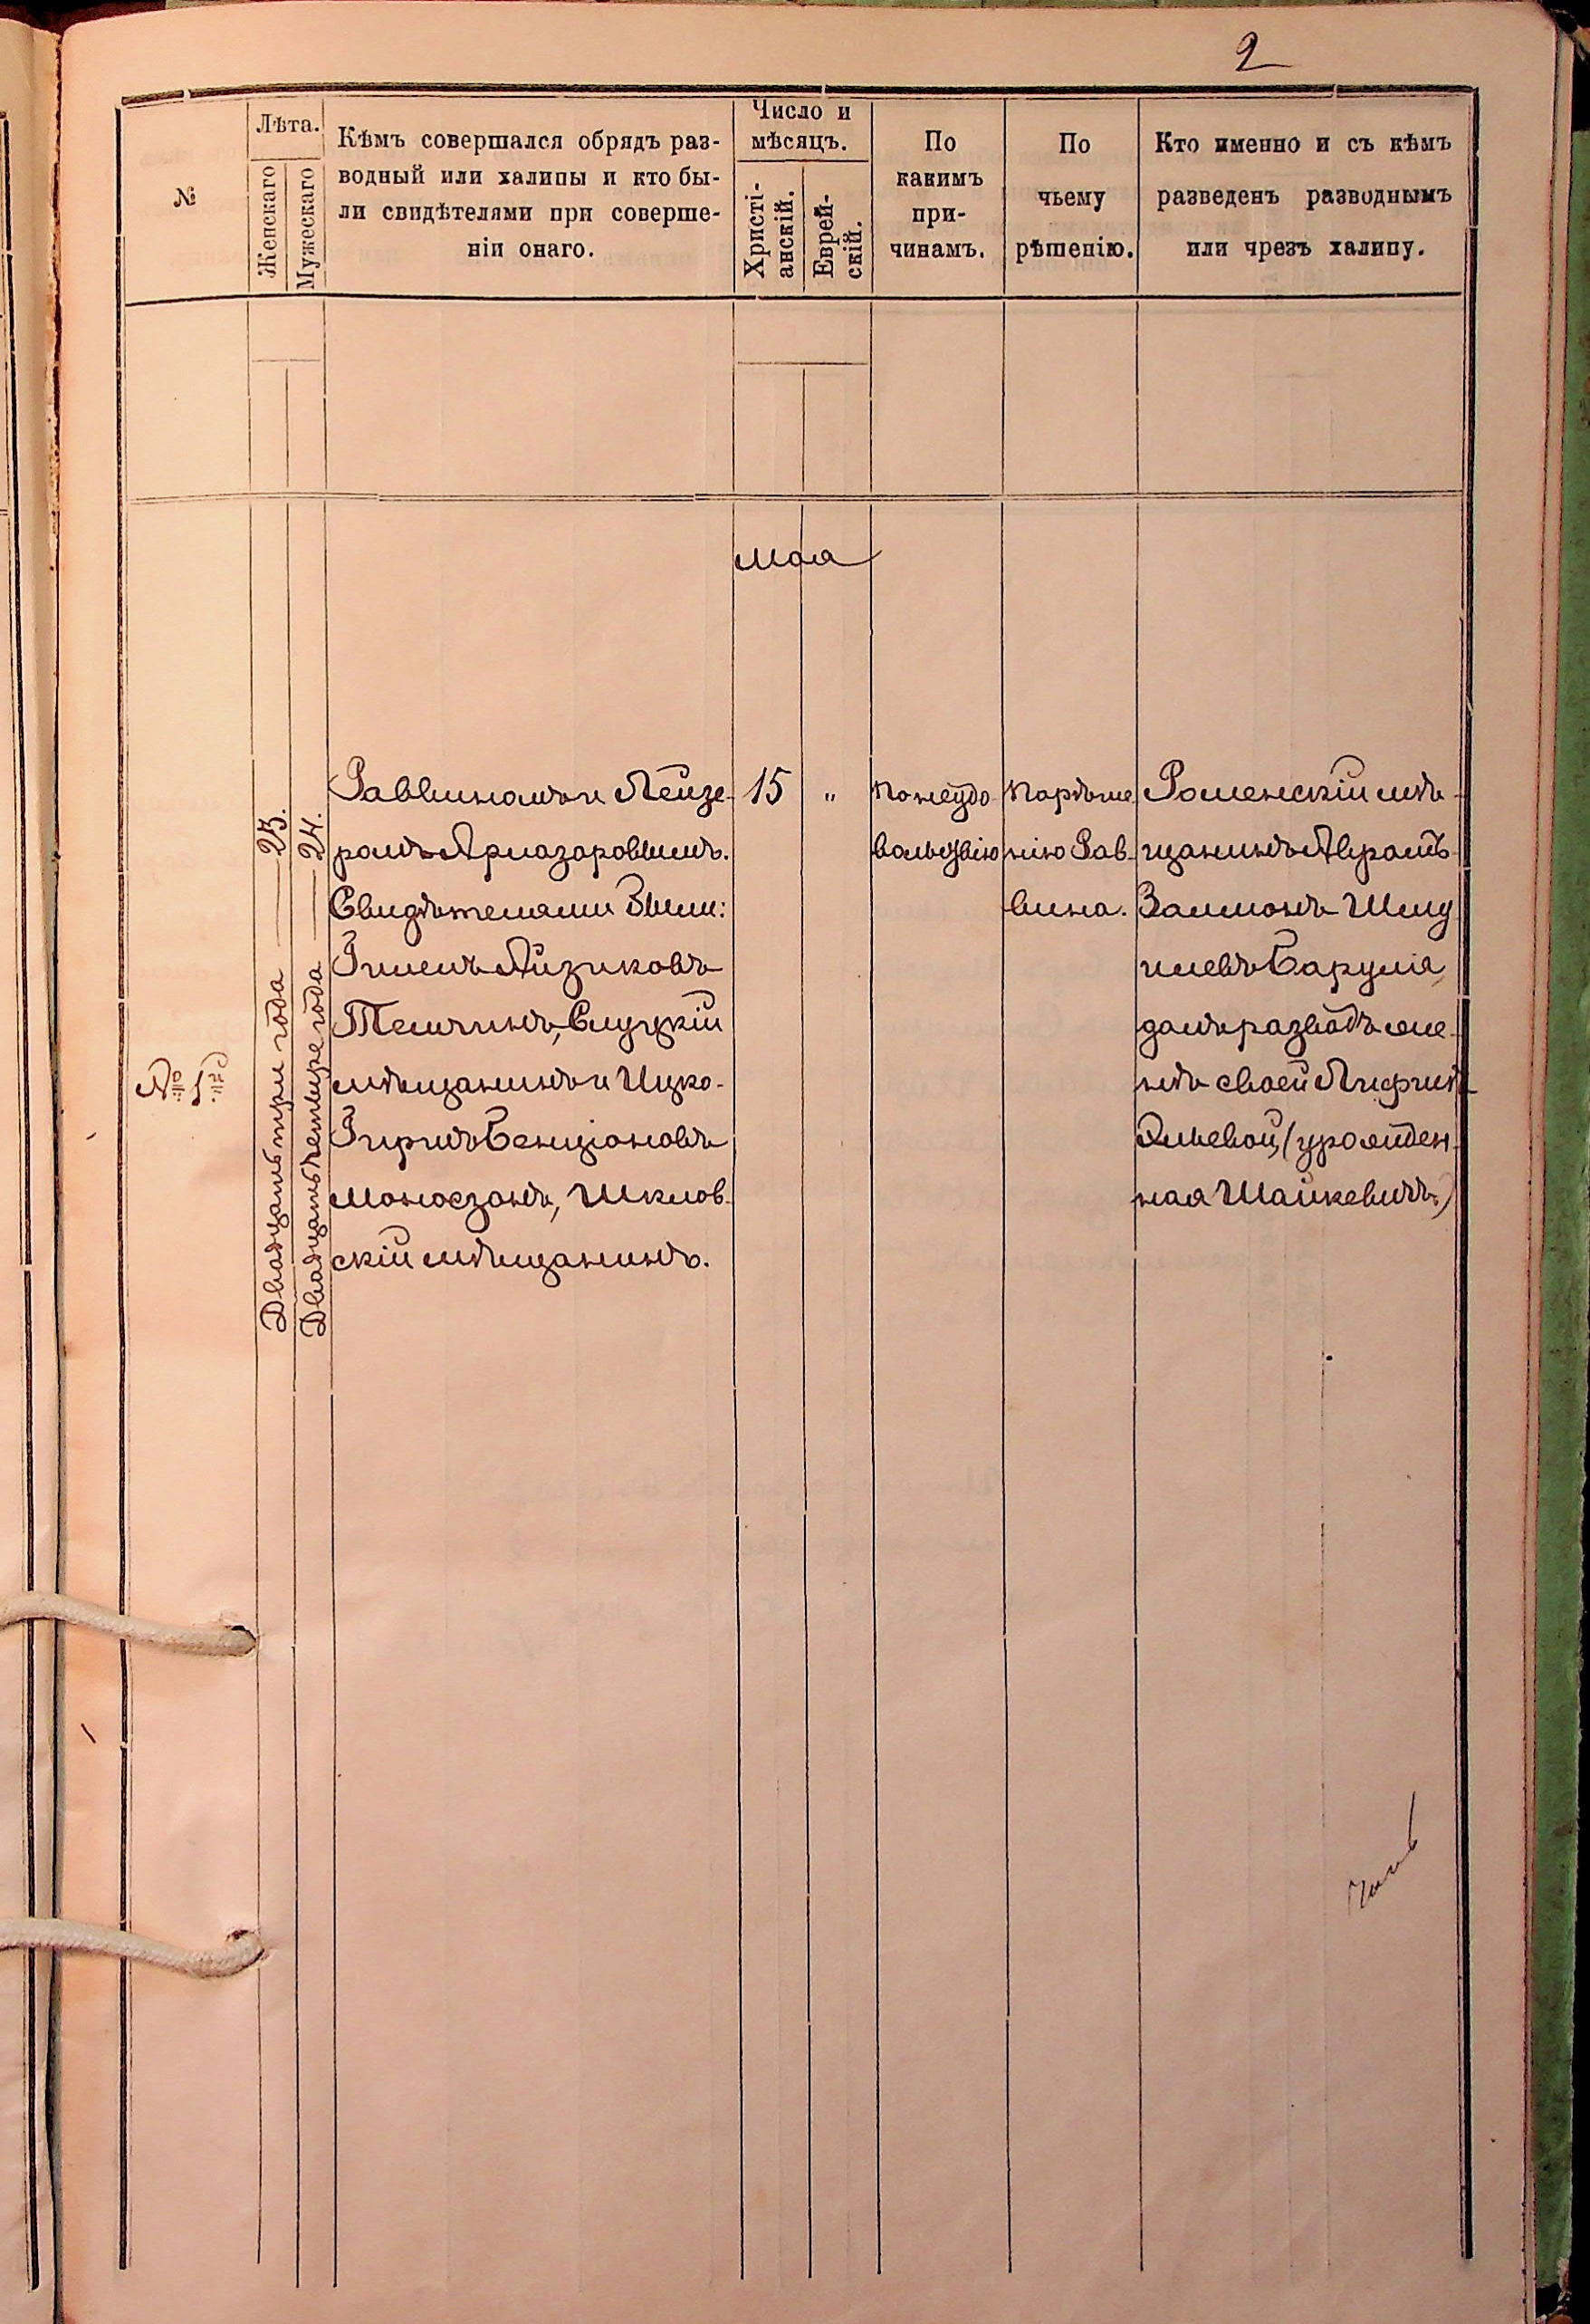 2
№
Лѣта.
Женскаго
Мужескаго
Кѣмъ совершался обрядъ раз-
водный или халицы и кто бы-
ли свидѣтелями при соверше-
ніи онаго.
Число и
мѣсяцъ.
Христі-
анскій.
Еврей-
скій.
По
какимъ
при-
чинамъ.
По
чьему
рѣшенію.
Кто именно и съ кѣмъ
разведенъ разводнымъ
или чрезъ халицу.
Мая
№ 1й
Двадцать три года — 23.
Двадцать четыре года — 24.
Раввиномъ Лейзе-
ромъ
Свидѣтелями были:
Гилель Айзиковъ
Темчинъ, Слуцкій
мѣщанинъ и Ицко-
Гиршъ Бенціоновъ
Моносзонъ, Шклов-
скій мѣщанинъ.
15
"
По неудо-
вольствію
По рѣше-
нію Рав-
вина.
Роменскій мѣ-
щанинъ Абрамъ
Залмонъ Шму
илевъ Барулія,
далъ разводъ же-
нѣ своей
(урожден-
ная Шайкевичъ)